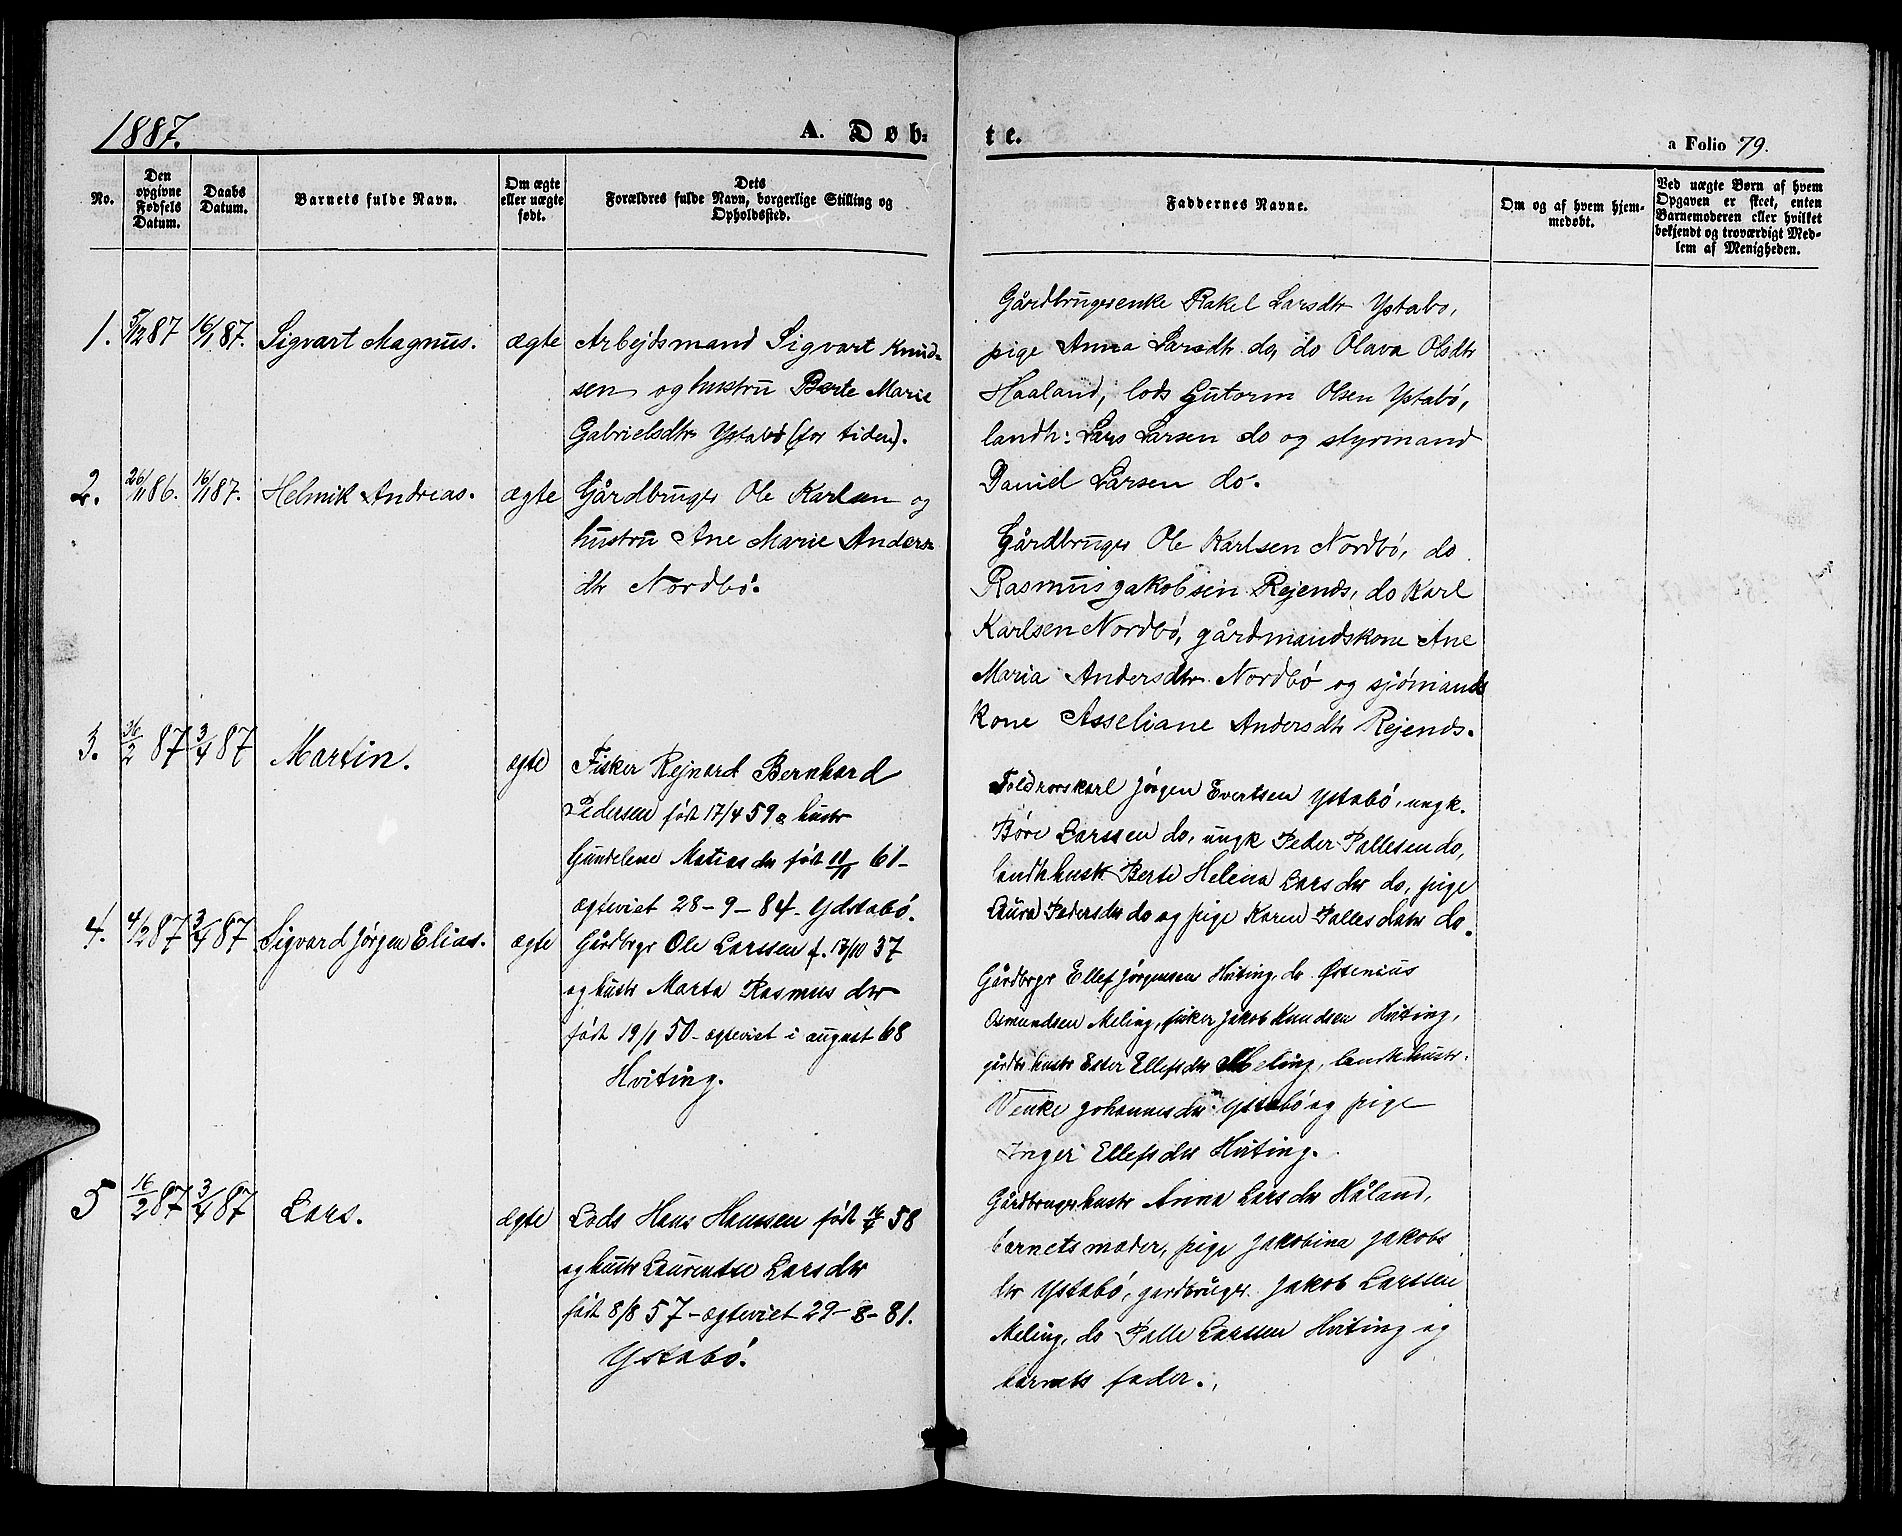 1887.
A. Døb-
te.
a Folio 79.
No.
Den opgivne Fødsels Datum.
Daabs Datum.
Barnets fulde Navn.
Om ægte eller uægte født.
Dets Forældres fulde Navn, borgerlige Stilling og Opholdssted.
Faddernes Navne.
Om og af hvem hjemmedøbt.
Ved uægte Børn af hvem Opgaven er skeet, enten Barnemoderen eller hvilket bekjendt og troværdigt Medlem af Menigheden.
1. 5/12 87 16/1 87. Sigvart Magnus. ægte
Arbejdsmand Sigvart Knud-
sen og hustru Berte Marie
Gabrielsdtr Ystabø (for tiden).
Gårdbrugerenke Rakel Larsdtr Ystabo,
pige Anna Larsdtr do, do Olava Olsdtr
Haaland, lods Gutorm Olsen Ystabö,
landh: Lars Larsen do og styrmand
Daniel Larsen do.
2. 26/11 86. 16/1 87. Helmik Andreas. ægte
Gårdbruger Ole Karlsen og
hustru Ane Marie Anders-
dtr Nordbö.
Gårdbruger Ole Karlsen Nordbö, do
Rasmus Jakobsen Rejends, do Karl
Karlsen Nordbö, gårdmandskone Ane
Maria Andersdtr Nordbö og sjömands
kone Asseliane Andersdtr Rejends.
3. 2 87 3/4 87 Martin. ægte
Fisker Rejnard Bernhard
Pedersen født 17/4 59 o hustr
Gundelene Matias dtr født 11/11 61-
ægteviet 28-9-84. Ydstabó.
Toldrorskarl Jörgen Evertsen Ystabö, ungk.
Böre Larssen do, ungk Peder Pallesen do,
landhhustr Berte Helena Lars dtr do, pige
Laura Pedersdtr do og pige Karen Palles datr do.
4. 4/2 87 3/4 87 Sigvard Jørgen Elias. ægte
Gårdbrgr Ole Larssen f. 17/10 37
og hustr Marta Rasmus dtr
født 19/1 50 - ægteviet i august 68
Hviting.
Gårdbrgr Ellef Jørgensen Hviting, do Østenius
Osmundsen Meling, fisker Jakob Knudsen Hviting,
gårdbr hustr Ester Ellefsdtr Meling, landhhustr.
Venke Johannesdtr Ystabö og pige
Inger Ellefsdtr Hviting.
5 16/2 87 3/4 87 Lars. ægte
Lods Hans Hanssen født 58
og hustr Laurentse Larsdtr
født 8/8 57 - ægteviet 29-8-81.
Ystabó.
Gårdbruger hustr Anna Lars dtr Håland,
barnets moder, pige Jakobina Jakobs
dtr Ystabö, gardbruger Jakob Larssen
Meling, do Palle Larssen Hviting og
barnets fader.